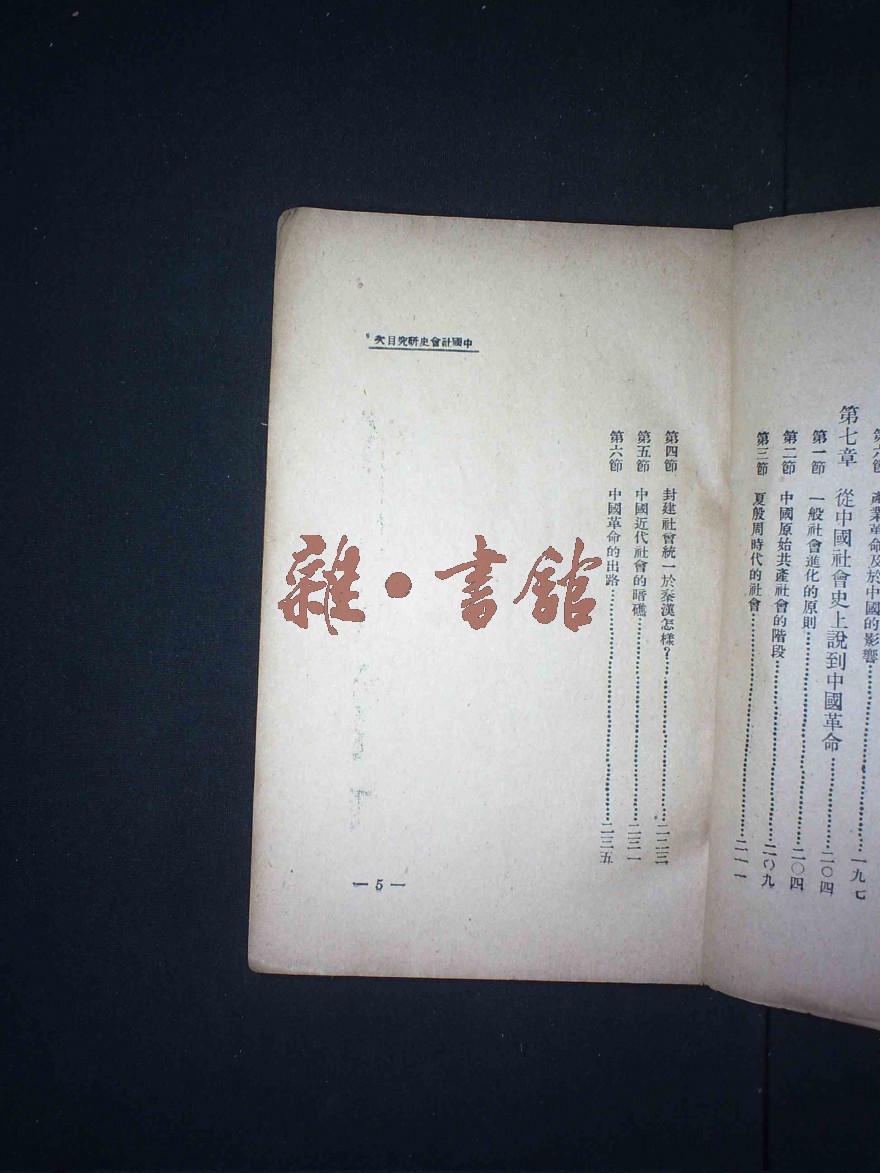 第六節 產業革命及於中國的影響……一九七
第七章 從中國社會史上說到中國革命……二〇四
第一節 一般社會進化的原則……二〇四
第二節 中國原始共產社會的階段……二〇九
第三節 夏殷周時代的社會……二一一
中國社會史研究目次
第四節 封建社會統一於秦漢怎樣？……二二三
第五節 中國近代社會的暗礁……二三一
第六節 中國革命的出路……二三五
— 5 —
雜·書館